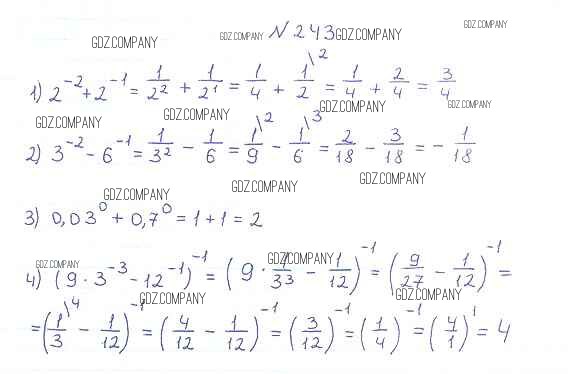 GDZ.COMPANY GDZ.COMPANY N 243 GDZ.COMPANY GDZ.COMPANY
1) 2^-2 + 2^-1 = 1/2^2 + 1/2^1 = 1/4 + 1/2 \2 = 1/4 + 2/4 = 3/4
GDZ.COMPANY GDZ.COMPANY GDZ.COMPANY GDZ.COMPANY
2) 3^-2 - 6^-1 = 1/3^2 - 1/6 = 1/9 \2 - 1/6 \3 = 2/18 - 3/18 = - 1/18
GDZ.COMPANY GDZ.COMPANY GDZ.COMPANY
3) 0,03^0 + 0,7^0 = 1 + 1 = 2
GDZ.COMPANY GDZ.COMPANY
4) (9 · 3^-3 - 12^-1)^-1 = (9 · 1/3^3 - 1/12)^-1 = (9/27 - 1/12)^-1 =
GDZ.COMPANY GDZ.COMPANY
= (1/3 \4 - 1/12)^-1 = (4/12 - 1/12)^-1 = (3/12)^-1 = (1/4)^-1 = (4/1)^1 = 4